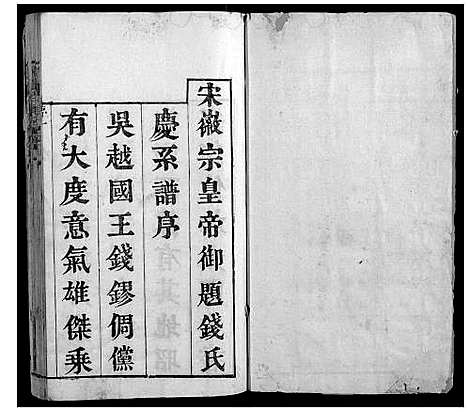 宋徽宗皇帝御題錢氏
慶系譜序
吳越國王錢鏐倜儻
有大度意氣雄傑乘